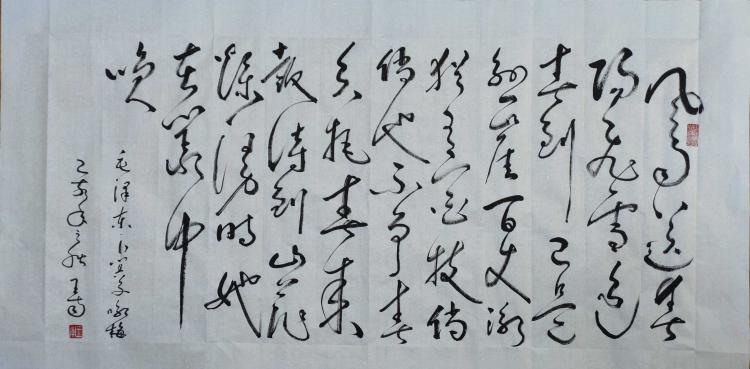 风雨送春
归飞雪迎
春到已是
悬崖百丈冰
犹有花枝俏
俏也不争春
只把春来
报待到山花
烂漫时她
在丛中
笑
毛泽东卜算子咏梅
亥年之秋